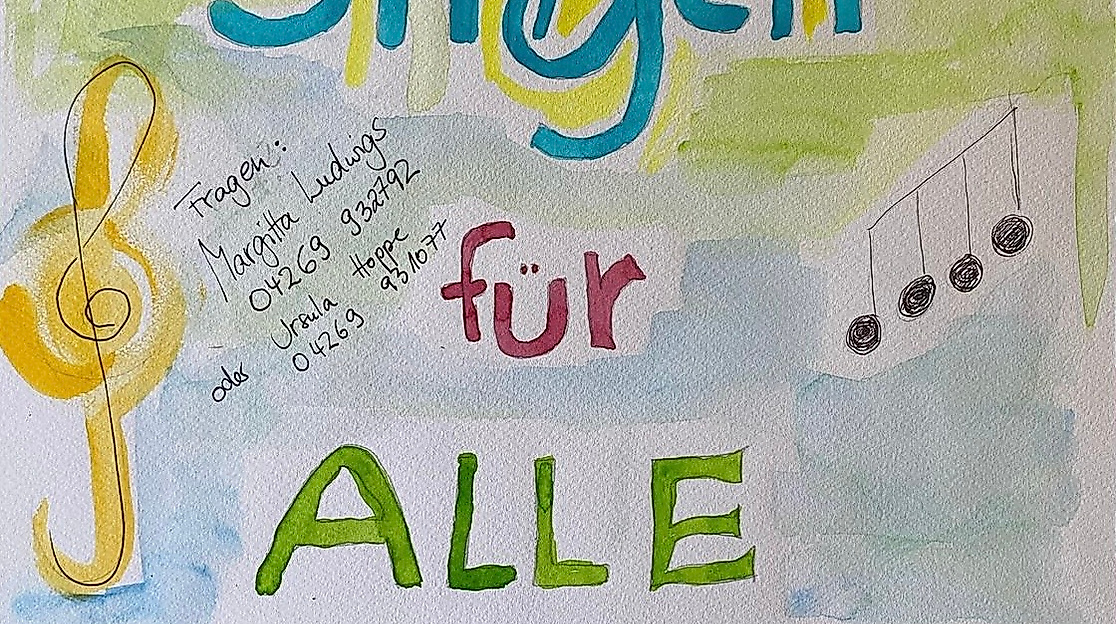 Singen
Fragen:
Margitta Ludwigs
04269 932792
oder Ursula Hoppe
04269 931077
für
ALLE